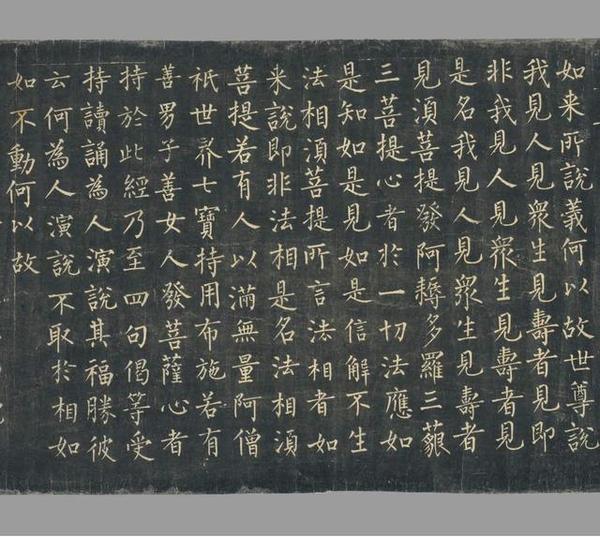 如来所說義何以故世尊說
我見人見衆生見壽者見即
非我見人見衆生見壽者見
是名我見人見衆生見壽者
見湏菩提發阿耨多羅三藐
三菩提心者於一切法應如
是知如是見如是信解不生
法相湏菩提所言法相者如
来說即非法相是名法相湏
菩提若有人以滿無量阿僧
祇世界七寶持用布施若有
善男子善女人發菩薩心者
持於此經乃至四句偈等受
持讀誦為人演說其福勝彼
云何為人演說不取於相如
如不動何以故